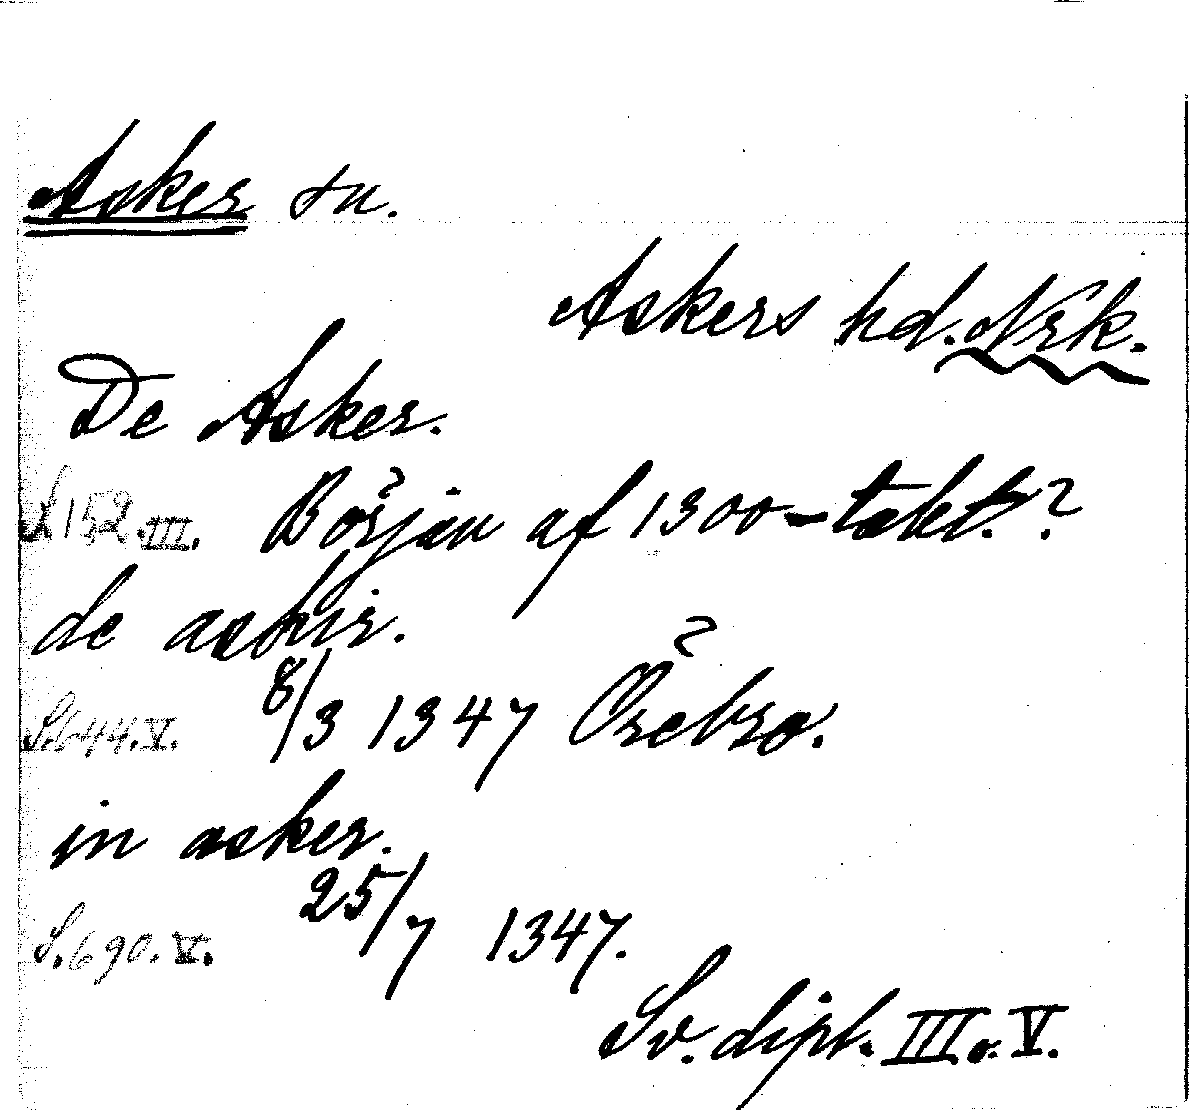 Asker sn.
Askers hd. Nrk.
De Asker.
S. 152. III. Början af 1300-talet.?
de askir.
S. 644. V. 8/3 1347 Örebro.
in asker.
S. 690. V. 25/7 1347.
Sv. dipl. III o. V.